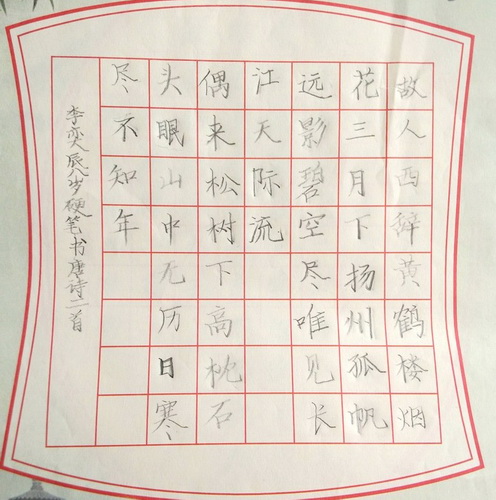 故人西辞黄鹤楼烟
花三月下扬州孤帆
远影碧空尽唯见长
江天际流
偶来松树下高枕石
头眠山中无历日寒
尽不知年
李奕辰八岁硬笔书唐诗二首